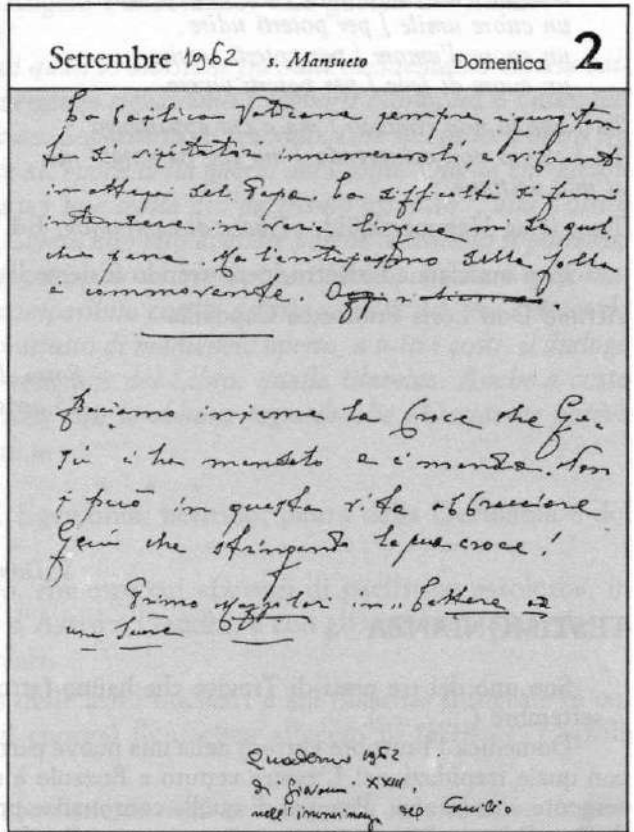 Settembre 1962 s. Mansueto Domenica 2
La Basilica Vaticana sempre rigurgitan
te di visitatori innumerevoli, e vibranti
in attesa del Papa. La difficoltà di farmi
intendere in varie lingue mi dà qual
che pena. Ma l'entusiasmo delle folle
è commovente. Oggi
Baciamo insieme la Croce che Ge-
sù ci ha mandato e ci manda. Non
si può in questa vita abbracciare
Gesù che stringendo la sua croce!
Primo Mazzolari in „ Lettere ad
una Suora
Quaderno 1962
di Giovanni XXIII,
nell'imminenza del Concilio